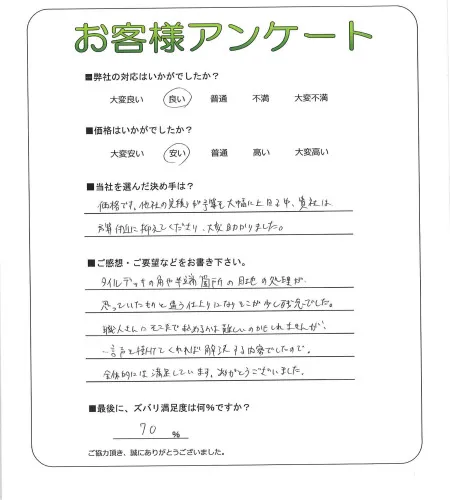 お客様アンケート
■弊社の対応はいかがでしたか？
大変良い 良い 普通 不満 大変不満
■価格はいかがでしたか？
大変安い 安い 普通 高い 大変高い
■当社を選んだ決め手は？
価格です。他社の見積りが予算を大幅に上回る中、貴社は
予算付近に抑えてくださり、大変助かりました。
■ご感想・ご要望などをお書き下さい。
タイルデッキの角や半端箇所の目地の処理が
思っていたものと違う仕上りになりそこが少し残念でした。
職人さんにそこまで求めるのは難しいのかもしれませんが、
一言声を掛けてくれれば解決する内容でしたので。
全体的には満足しています。ありがとうございました。
■最後に、ズバリ満足度は何％ですか？
70 ％
ご協力頂き、誠にありがとうございました。